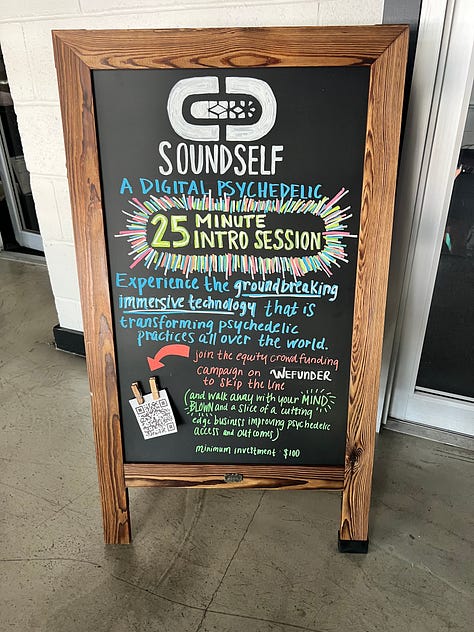 SOUNDSELF
A DIGITAL PSYCHEDELIC
25 MINUTE
INTRO SESSION
Experience the groundbreaking
immersive technology that is
transforming psychedelic
practices all over the world.
join the equity crowdfunding
campaign on WEFUNDER
to skip the line
(and walk away with your MIND
BLOWN and a slice of a cutting
edge business improving psychedelic
access and outcomes)
minimum investment $100